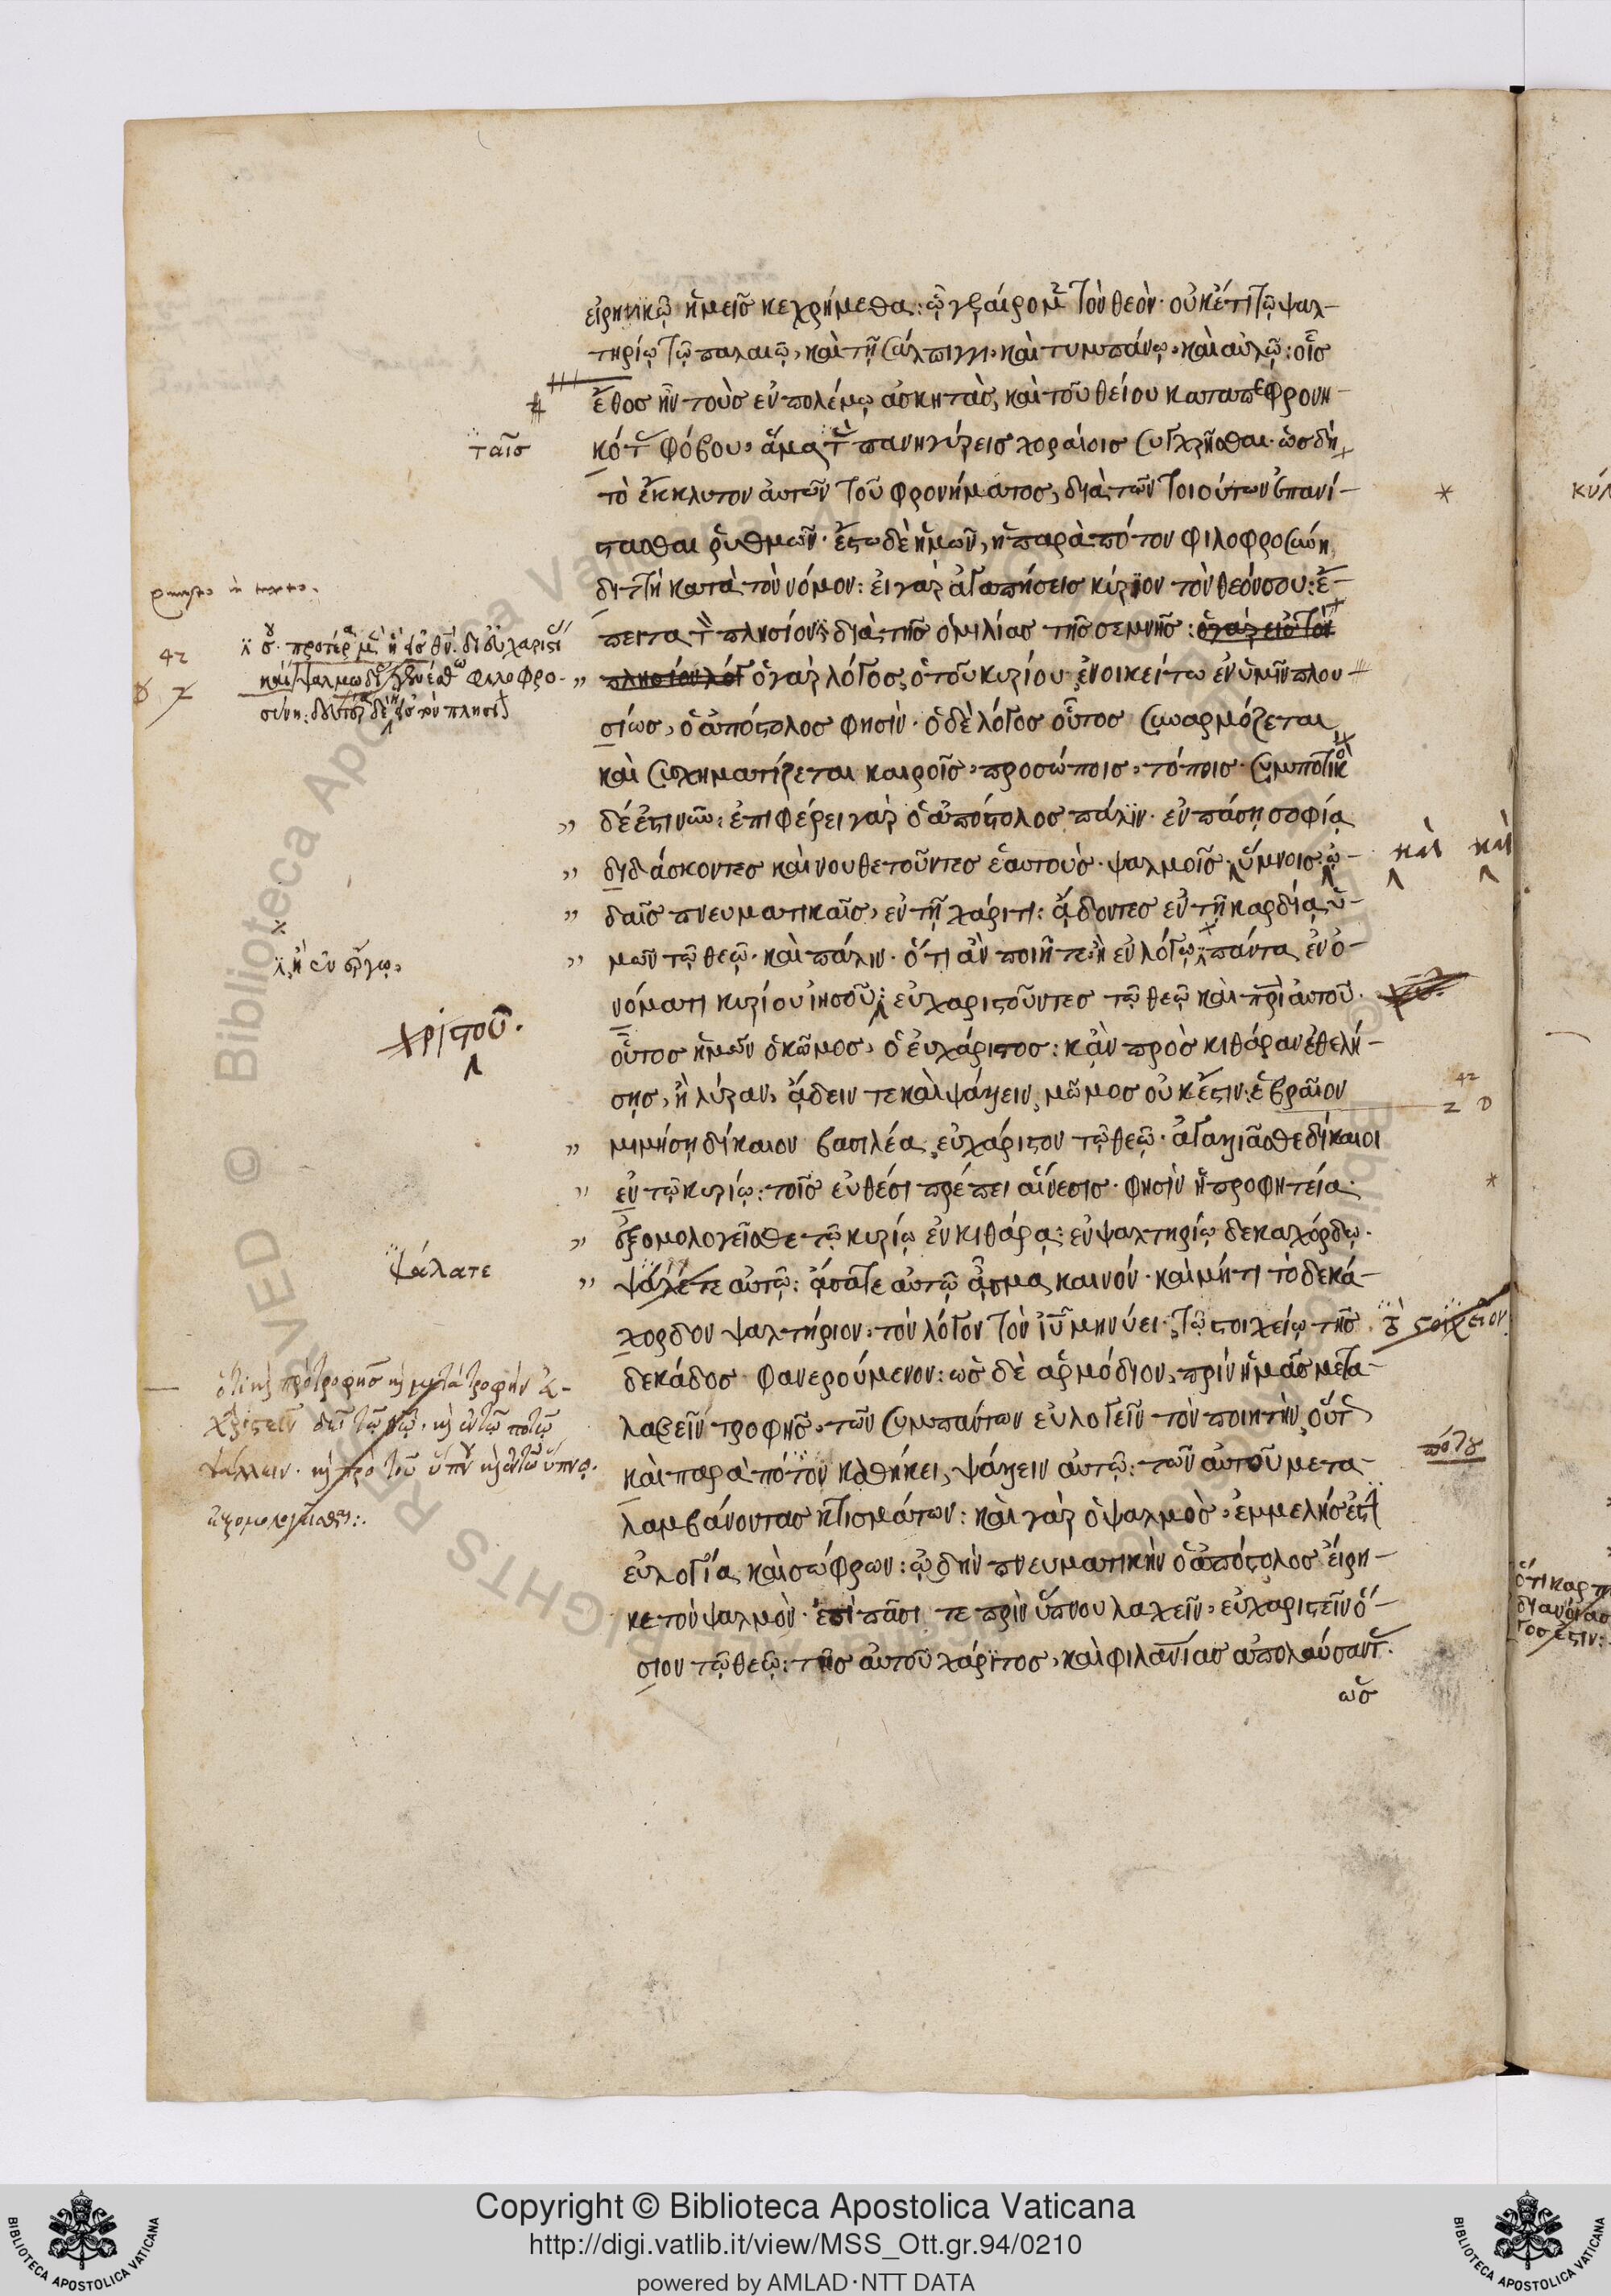 εἰρηνικῷ ἡμεῖσ κεχρήμεθα: ᾧ γεραίρομεν τὸν θεόν· οὐκέτι τῷ ψαλ-
τηρίῳ τῷ παλαιῷ, καὶ τῇ σάλπιγγι, καὶ τυμπάνῳ, καὶ αὐλῷ: οἷσ
ἔθοσ ἦν τοὺσ ἐν πολέμῳ ἀσκητὰσ, καὶ τοῦ θείου καταπεφρονη-
ταῖσ
κότασ φόβου, ἅμα τὰσ πανηγύρεισ χοραίοισ συγχρῆσθαι· ὡσ δὴ
τὸ ἔκκλυτον αὐτῶν τοῦ φρονήματοσ, διὰ τῶν τοιούτων ἐπανί-
στασθαι ῥυθμῶν· ἔστω δὲ ἡμῶν, ἡ παρὰ πότον φιλοφροσύνη,
διττὴ κατὰ τὸν νόμον: εἰ γὰρ ἀγαπήσεισ κύριον τὸν θεόν σου: ἔ-
πειτα τὸν πλησίον: διὰ τῆσ ὁμιλίασ τῆσ σεμνῆσ: ὁ γὰρ εἰσ τὸν
πλησίον λόγ ὁ γὰρ λόγοσ, ὁ τοῦ κυρίου ἐνοικείτω ἐν ὑμῖν πλου-
σίωσ, ὁ ἀπόστολοσ φησίν· ὁ δὲ λόγοσ οὗτοσ συναρμόζεται
καὶ συσχηματίζεται καιροῖσ, προσώποισ, τόποισ· συμποτικὸσ
δέ ἐστι νῦν: ἐπιφέρει γὰρ ὁ ἀπόστολοσ πάλιν· ἐν πάσῃ σοφίᾳ
διδάσκοντεσ καὶ νουθετοῦντεσ ἑαυτοὺσ· ψαλμοῖσ, ὕμνοισ, ᾠ-
καὶ καὶ
δαῖσ πνευματικαῖσ, ἐν τῇ χάριτι: ᾄδοντεσ ἐν τῇ καρδίᾳ ὑ-
μῶν τῷ θεῷ· καὶ πάλιν· ὅ,τι ἂν ποιῆτε ἢ ἐν λόγῳ, πάντα ἐν ὀ-
ἢ ἐν ἔργῳ,
νόματι κυρίου ἰησοῦ: εὐχαριστοῦντεσ τῷ θεῷ καὶ πρὶ αὐτοῦ·
χριστοῦ.
οὗτοσ ἡμῶν ὁ κῶμοσ, ὁ εὐχάριστοσ: κἂν πρὸσ κιθάραν ἐθελή-
σῃσ, ἢ λύραν, ᾄδειν τε καὶ ψάλλειν, μῶμοσ οὐκ ἔστιν: ἑβραῖον
μιμήσῃ δίκαιον βασιλέα, εὐχάριστον τῷ θεῷ· ἀγαλλιᾶσθε δίκαιοι
ἐν τῷ κυρίῳ: τοῖσ εὐθέσι πρέπει αἴνεσισ· φησὶν ἡ προφητεία·
ἐξομολογεῖσθε τῷ κυρίῳ ἐν κιθάρᾳ: ἐν ψαλτηρίῳ δεκαχόρδῳ·
ψάλατε
ψάλετε αὐτῷ: ᾄσατε αὐτῷ ᾆσμα καινόν· καὶ μήτι τὸ δεκά-
χορδον ψαλτήριον, τὸν λόγον τὸν ἰῦ μηνύει, τῷ στοιχείῳ τῆσ
στοιχεῖον
δεκάδοσ φανερούμενον: ὡσ δὲ ἁρμόδιον, πρὶν ἡμᾶσ μετα-
λαβεῖν τροφῆσ, τῶν συμπάντων εὐλογεῖν τὸν ποιητὴν, οὕτω
καὶ παρὰ πότον καθήκει, ψάλλειν αὐτῷ: τῶν αὐτοῦ μετα-
λαμβάνοντασ κτισμάτων: καὶ γὰρ ὁ ψαλμὸσ, ἐμμελήσ ἐστιν
εὐλογία, καὶ σώφρων: ᾠδὴν πνευματικὴν ὁ ἀπόστολοσ εἴρη-
κε τὸν ψαλμόν· ἐπὶ πᾶσί τε πρὶν ὕπνου λαχεῖν, εὐχαριστεῖν ὅ-
σιον τῷ θεῷ: τῆσ αὐτοῦ χάριτοσ, καὶ φιλανίασ ἀπολαύσαντασ.
ὡσ
Copyright © Biblioteca Apostolica Vaticana
http://digi.vatlib.it/view/MSS_Ott.gr.94/0210
powered by AMLAD·NTT DATA
BIBLIOTECA APOSTOLICA VATICANA
BIBLIOTECA APOSTOLICA VATICANA